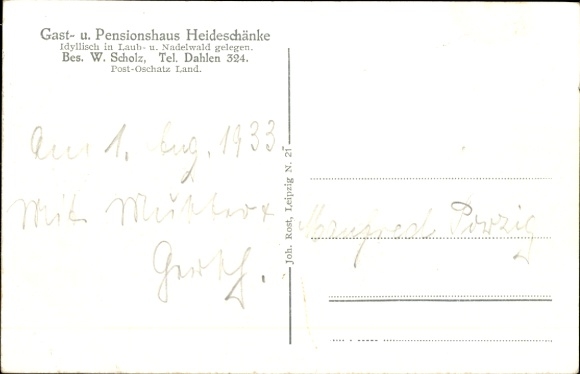 Gast- u. Pensionshaus Heideschänke
Idyllisch in Laub- u. Nadelwald gelegen.
Bes. W. Scholz, Tel. Dahlen 324.
Post-Oschatz Land.
Am 1. Aug. 1933
Mit Mutter +
Joh. Rost, Leipzig N. 21
Manfred Porzig